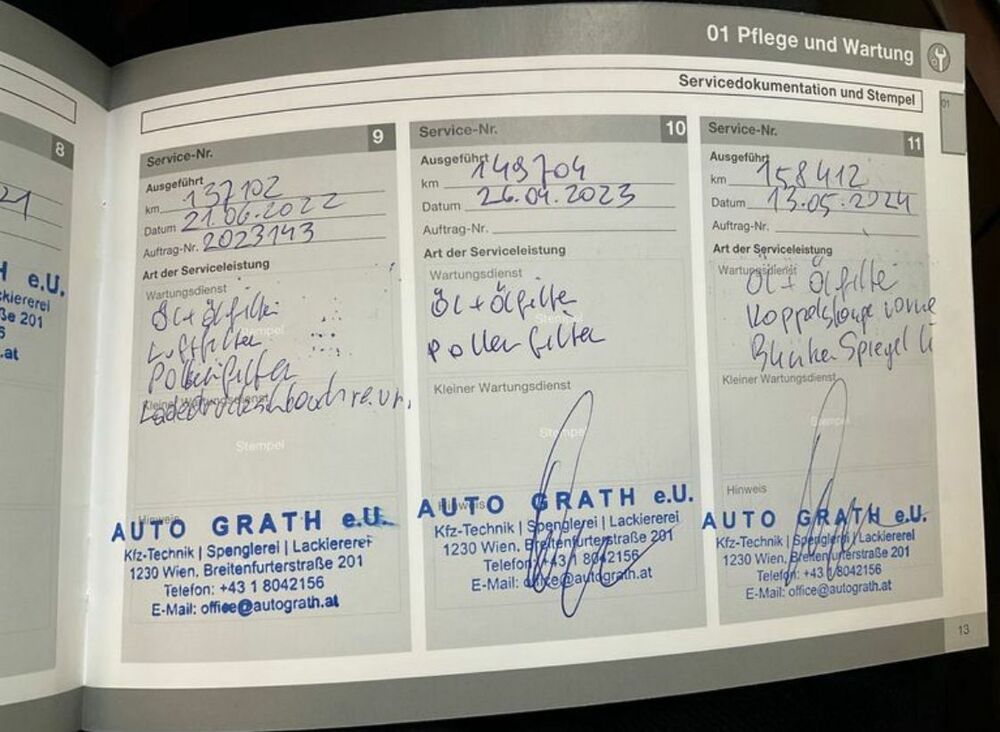 01 Pflege und Wartung
Servicedokumentation und Stempel
01
8
21
H e.U.
ckiererei
ße 201
6
.at
Service-Nr. 9
Ausgeführt
km 137102
Datum 21.06.2022
Auftrag-Nr. 2023143
Art der Serviceleistung
Wartungsdienst
Öl + Ölfilter
Stempel
Luftfilter
Pollenfilter
Kleiner Wartungsdienst
Ladedruckschlauch
Stempel
Hinweis
AUTO GRATH e.U.
Kfz-Technik | Spenglerei | Lackiererei
1230 Wien, Breitenfurterstraße 201
Telefon: +43 1 8042156
E-Mail: office@autograth.at
Service-Nr. 10
Ausgeführt
km 149704
Datum 26.04.2023
Auftrag-Nr.
Art der Serviceleistung
Wartungsdienst
Öl + Ölfilter
Stempel
Pollenfilter
Kleiner Wartungsdienst
Stempel
Hinweis
AUTO GRATH e.U.
Kfz-Technik | Spenglerei | Lackiererei
1230 Wien, Breitenfurterstraße 201
Telefon: +43 1 8042156
E-Mail: office@autograth.at
Service-Nr. 11
Ausgeführt
km 158412
Datum 13.05.2024
Auftrag-Nr.
Art der Serviceleistung
Wartungsdienst
Öl + Ölfilter
Koppelstange vorne
Blinker Spiegel
Kleiner Wartungsdienst
Stempel
Hinweis
AUTO GRATH e.U.
Kfz-Technik | Spenglerei | Lackiererei
1230 Wien, Breitenfurterstraße 201
Telefon: +43 1 8042156
E-Mail: office@autograth.at
13